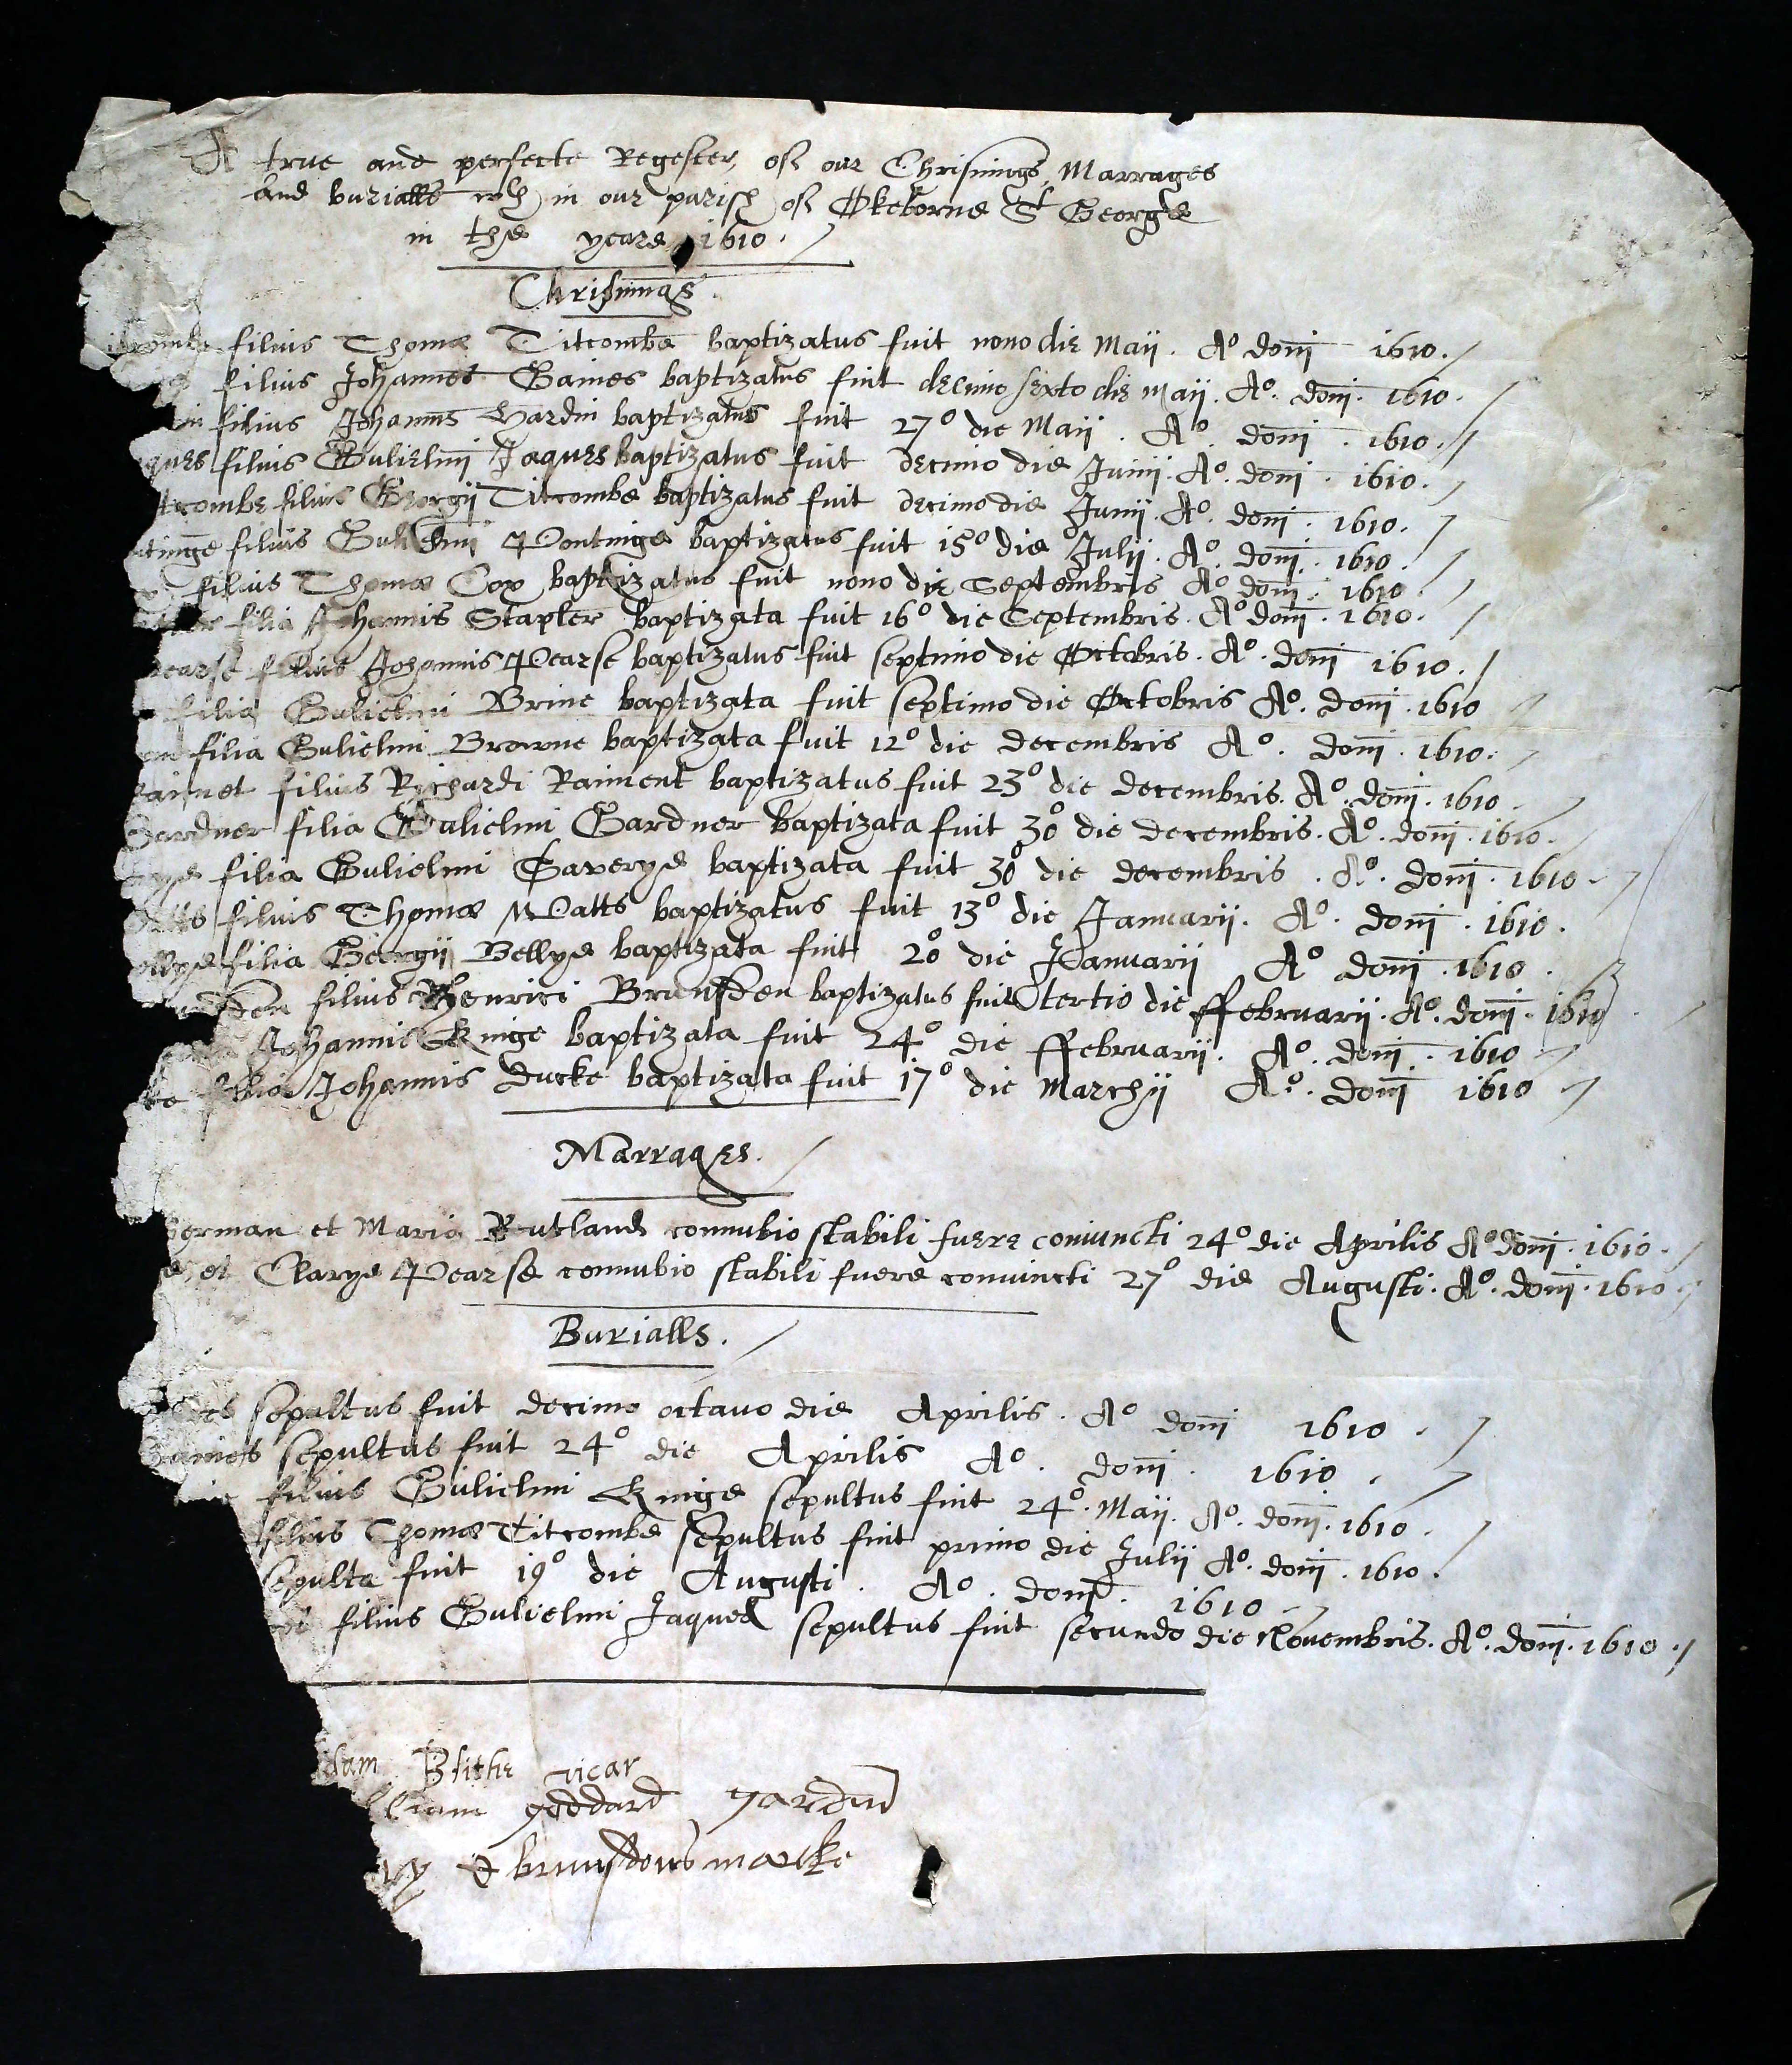 A true and perfecte Regester, of our Chrisnings, Marrages
and burialls wch in our parish of Okeborne St George
in the yeare 1610.
Chrisnings.
filius Thomæ Titcombe baptizatus fuit nono die Maii. Ao doni 1610.
filius Johannes Gaines baptizatus fuit decimo sexto die Maii. Ao. doni. 1610.
in filius Johannis Hardin baptizatus fuit 27o die Maii. Ao. doni. 1610.
ques filius Gulielmi Jaques baptizatus fuit decimo die Junii. Ao. doni. 1610.
tcombe filius Georgii Titcombe baptizatus fuit decimo die Junii. Ao. doni. 1610.
ntinge filius Gulielmi Pontinge baptizatus fuit 15o die Julii. Ao. doni. 1610.
filius Thomæ Cox baptizatus fuit nono die Septembris Ao doni. 1610.
filia Johannis Stapler baptizata fuit 16o die Septembris. Ao doni. 1610.
earse filius Johannis Pearse baptizatus fuit septimo die Octobris. Ao. doni 1610.
filia Gulielmi Brine baptizata fuit septimo die Octobris Ao. doni. 1610
filia Gulielmi Browne baptizata fuit 12o die decembris Ao. doni. 1610.
aimet filius Richardi Raiment baptizatus fuit 23o die decembris. Ao. doni. 1610.
Gardner filia Gulielmi Gardner baptizata fuit 30o die decembris. Ao. doni. 1610.
rye filia Gulielmi Saverye baptizata fuit 30o die decembris. Ao. doni. 1610.
atts filius Thomæ Watts baptizatus fuit 13o die Januarii. Ao. doni. 1610.
ellye filia Georgii Bellye baptizata fuit 20o die Januarii Ao doni. 1610.
nsden filius Henrici Brunsden baptizatus fuit tertio die ffebruarii. Ao. doni. 1610.
Johannis Kinge baptizata fuit 24o die ffebruarii. Ao. doni. 1610
ke filia Johannis ducke baptizata fuit 17o die Marchii Ao. doni 1610
Marrages.
erman et Maria Rutland connubio stabili fuere coniuncti 24o die Aprilis Ao doni. 1610.
e, et Clarye Pearse connubio stabili fuere conuincti 27o die Augusti. Ao. doni. 1610.
Burialls.
sepultus fuit decimo octauo die Aprilis. Ao doni 1610.
Gaines sepultus fuit 24o die Aprilis Ao. doni. 1610.
filius Gulielmi Kinge sepultus fuit 24o. Maii. Ao. doni. 1610.
filius Thomæ Titcombe sepultus fuit primo die Julii Ao. doni. 1610.
sepulta fuit 19o die Augusti. Ao. doni. 1610.
filius Gulielmi Jaques sepultus fuit secundo die Nouembris. Ao. doni. 1610.
dam Blithe vicar
lliam goddard
ry brunsdens marke